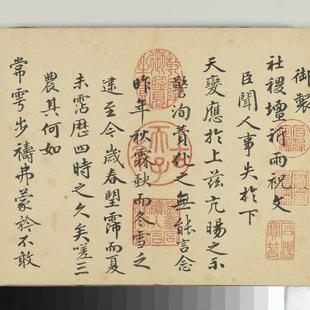 御製
社稷壇祈雨祝文
臣聞人事失於下
天變應於上茲亢暘之示
警洵之無能言念
昨年秋霖缺而冬雪乏
逮至今歲春望霈而夏
未霑歷四時之久矣嗟三
農其何如
常雩步禱弗蒙不敢